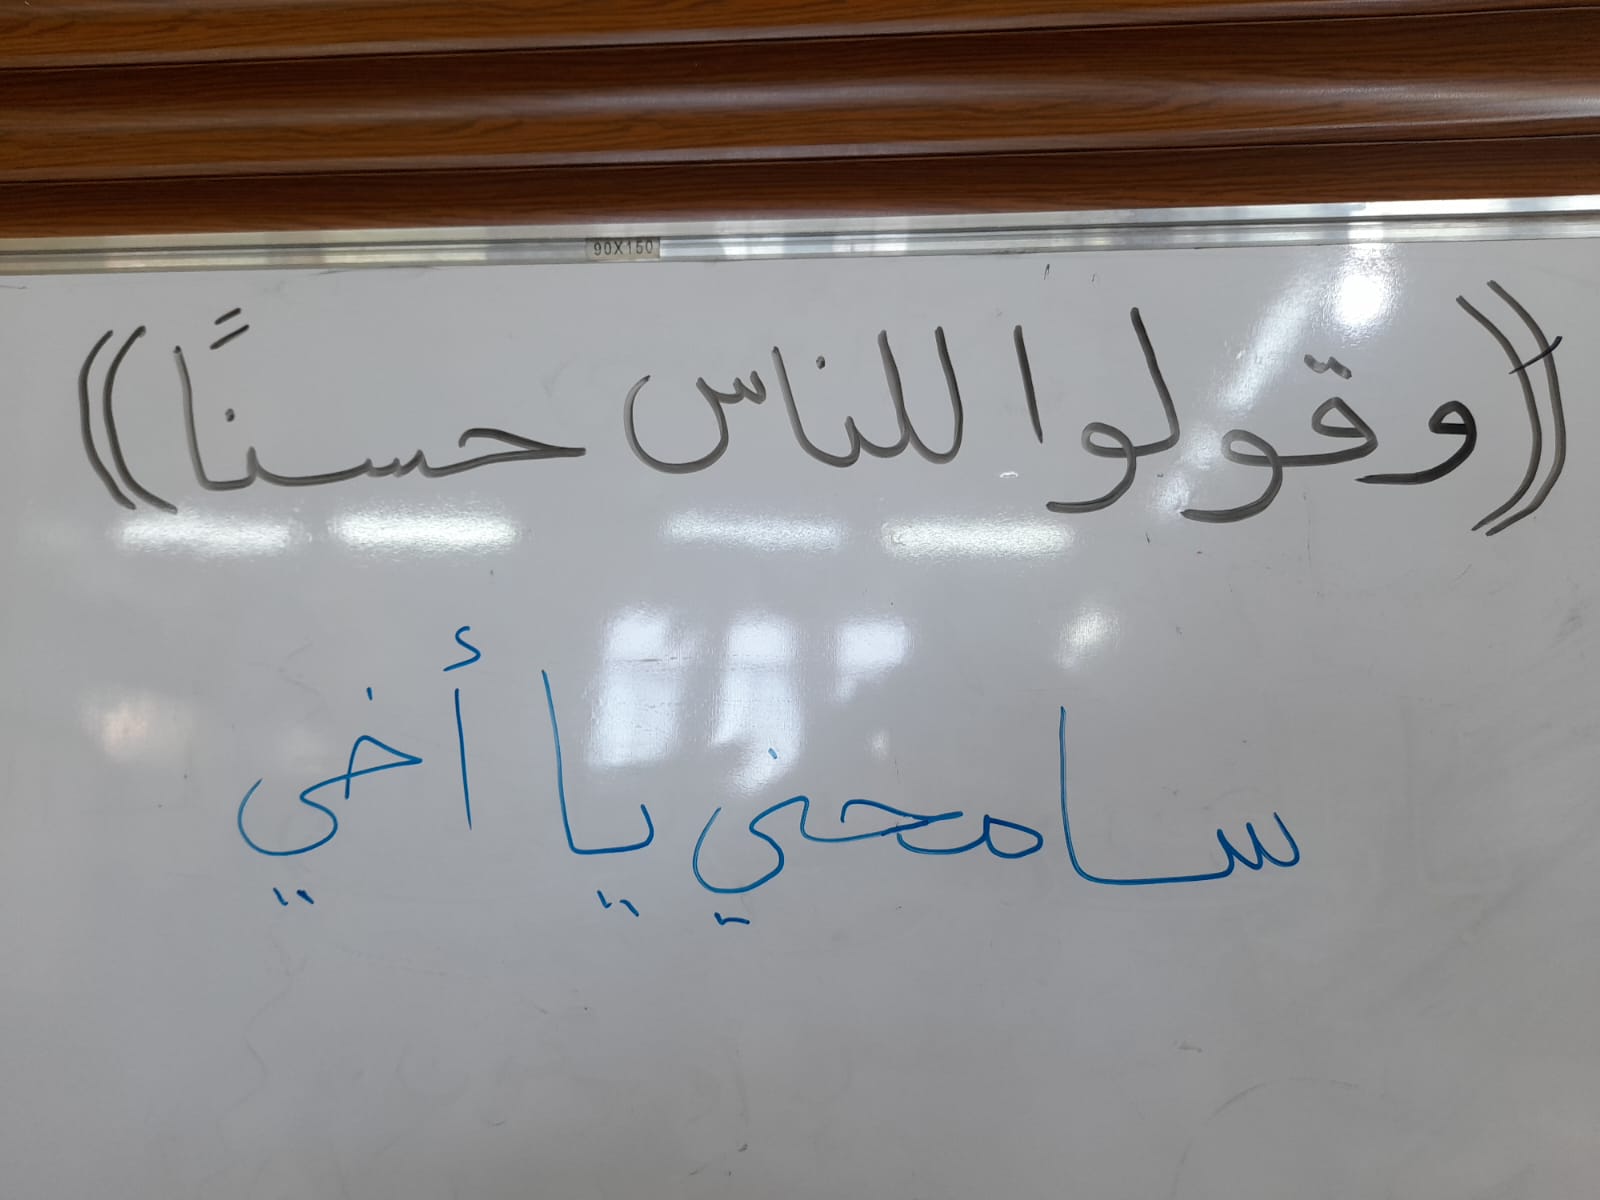 90X150
((وقولوا للناس حسنًا))
سامحني يا أخي